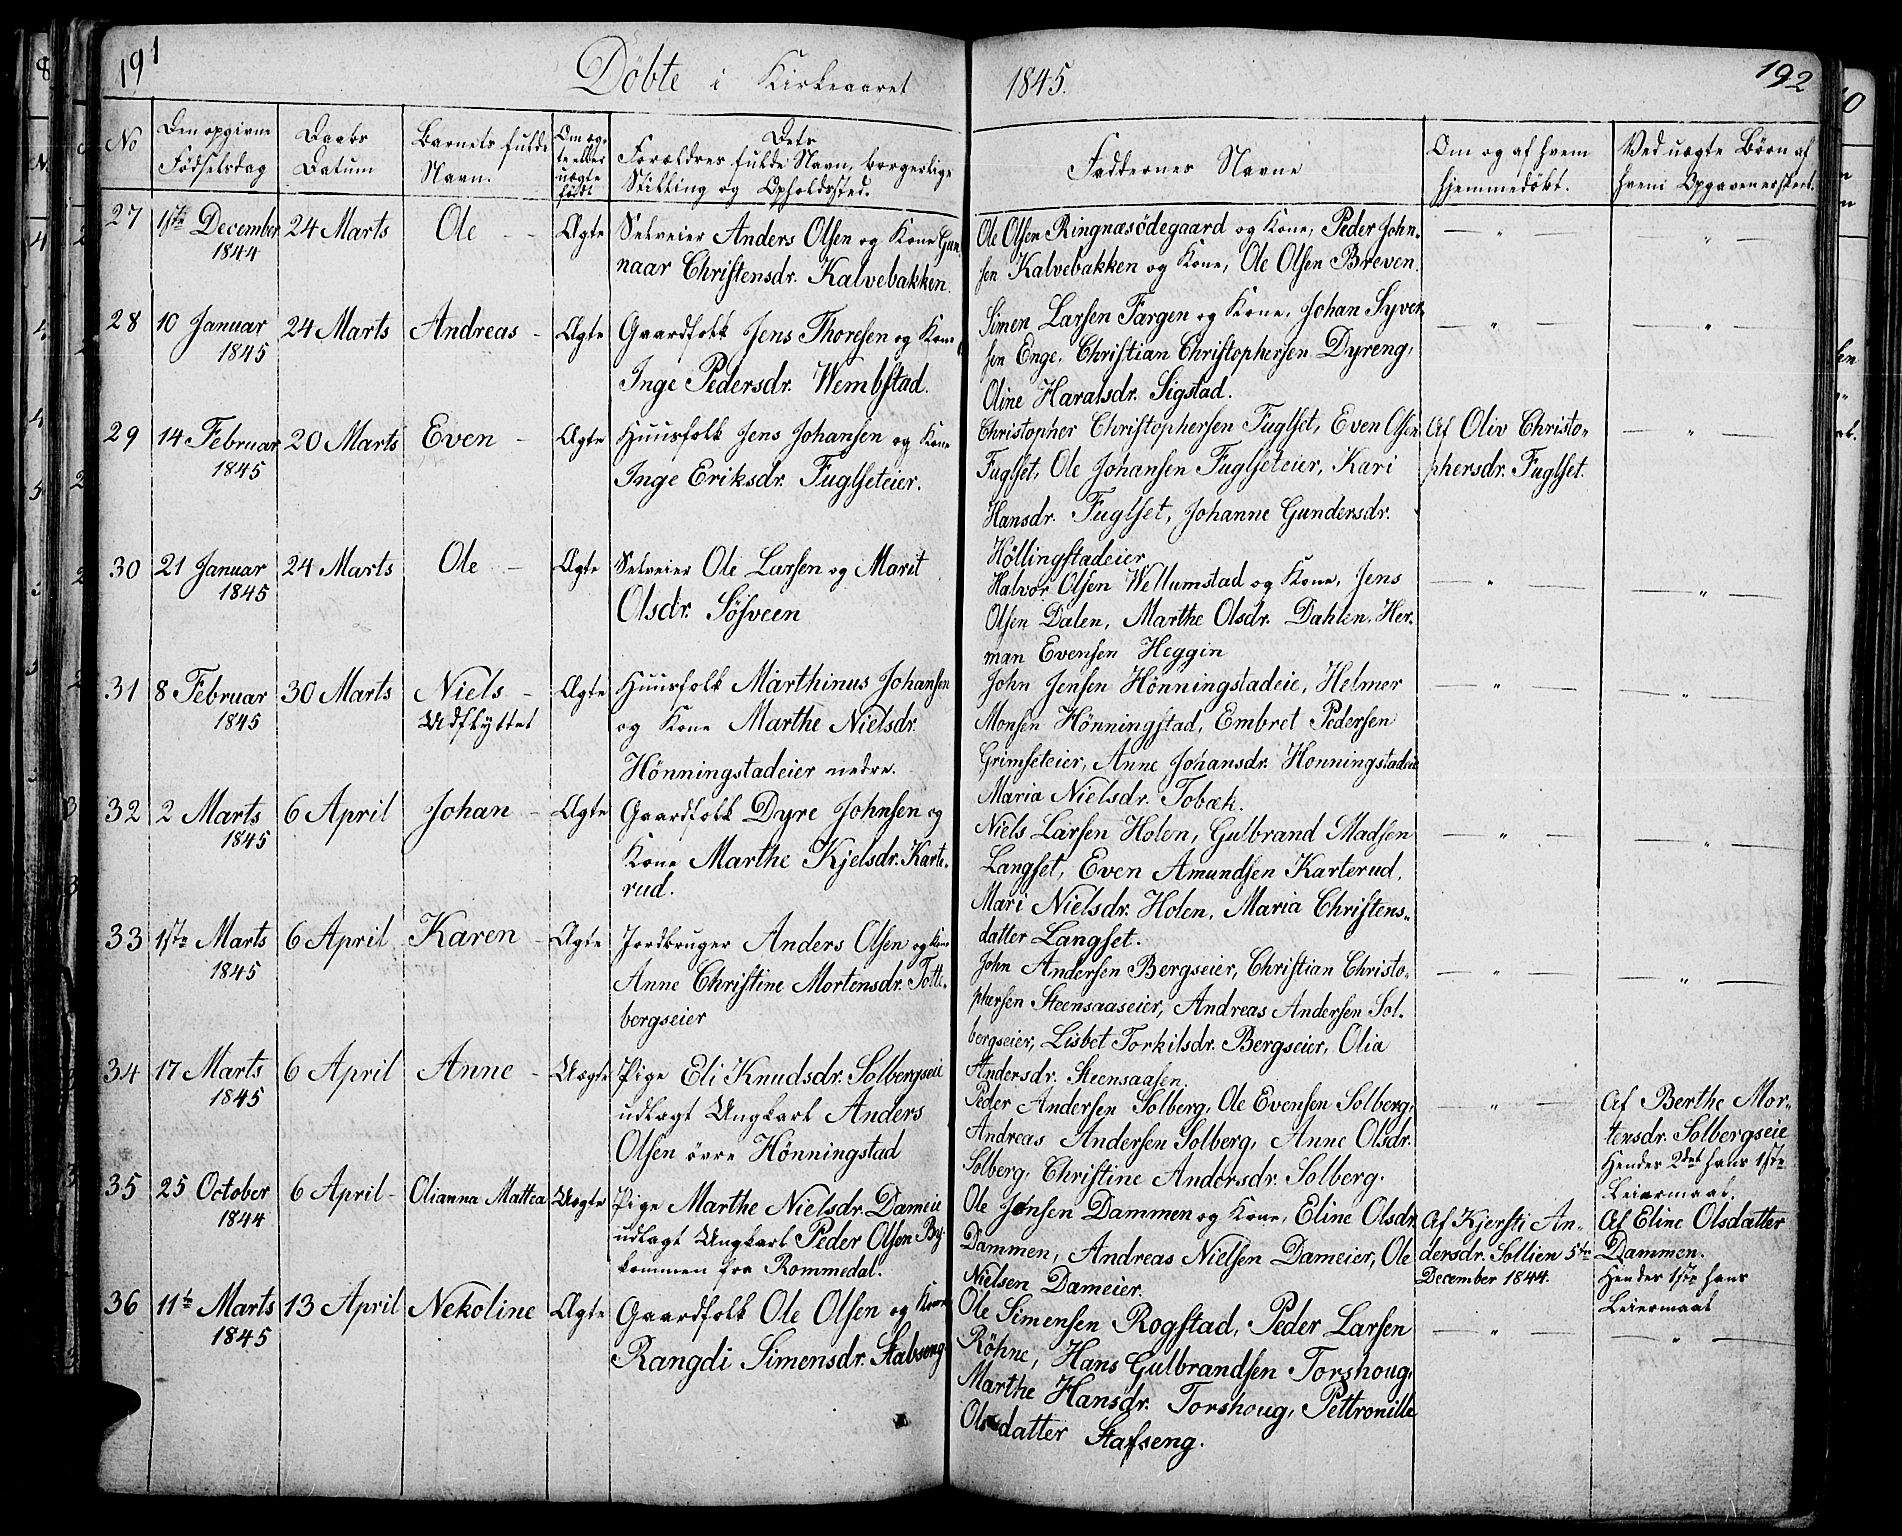 191
Döbte i Kirkeaaret
1845.
192
No
Den opgivne Födselsdag
Daabs Datum
Barnets fulde Navn.
Om ægte eller uægte födt
Dets Forældres fulde Navn, borgerlige Stilling og Opholdssted.
Faddernes Navne
Om og af hvem hjemmedöbt.
Ved uægte Börn af hvem Opgaven er skeet.
27 1ste December 24 Marts Ole - - Ægte Selveier Anders Olsen og Kone Gun-
1844 naar Christensdr. Kalvebakken.
Ole Olsen Ringnæsödegaard og Kone, Peder John-
sen Kalvebakken og Kone, Ole Olsen Breven.
— " — — " —
28 10 Januar 24 Marts Andreas - Ægte Gaardfolk Jens Thoresen og Kone
1845 Inge Pedersdr. Wembstad.
Simen Larsen Fargen og Kone, Johan Syver-
sen Enge, Christian Christophersen Dyreng,
Oline Haralsdr. Sigstad.
— " — — " —
29 14 Februar 20 Marts Even - Ægte Huusfolk Jens Johansen og Kone
1845 Inge Eriksdr. Fuglseteier.
Christopher Christophersen Fuglset, Even Olsen
Fuglset, Ole Johansen Fuglseteier, Kari
Hansdr. Fuglset, Johanne Gundersdr.
Höllingstadeier
Af Oliv Christo-
phersdr. Fuglset.
— " —
30 21 Januar 24 Marts Ole - Ægte Selveier Ole Larsen og Marit
1845 Olsdr. Sösveen
Halvor Olsen Wellumstad og Kone, Jens
Olsen Dalen, Marthe Olsdr. Dahlen, Her-
man Evensen Heggin
— " — — " —
31 8 Februar 30 Marts Niels - Ægte Huusfolk Marthinus Johansen
1845 Udflyttet og Kone Marthe Nielsdr.
Hönningstadeier nedre.
John Jensen Hönningstadeie, Helmer
Monsen Hönningstad, Embret Pedersen
Grimseteier, Anne Johansdr. Honningstadeie
Maria Nielsdr. Tobæk.
— " — — " —
32 2 Marts 6 April Johan - Ægte Gaardfolk Dyre Johnsen og
1845 Kone Marthe Kjelsdr. Karte-
rud.
Niels Larsen Holen, Gulbrand Madsen
Langset, Even Amundsen Karterud,
Mari Nielsdr. Holen, Maria Christens-
datter Langset.
— " — — " —
33 1ste Marts 6 April Karen - Ægte Jordbruger Anders Olsen og Kone
1845 Anne Christine Mortensdr. Totte-
bergseier
John Andersen Bergseier, Christian Christo-
phersen Steensaaseier, Andreas Andersen Sol-
bergseier, Lisbet Torkilsdr. Bergseier, Olia
Andersdr. Steensaasen.
— " — — " —
34 17 Marts 6 April Anne - Uægte Pige Eli Knudsdr. Solbergseie
1845 udlagt Ungkarl Anders
Olsen övre Hönningstad
Peder Andersen Solberg, Ole Evensen Solberg,
Andreas Andersen Solberg, Anne Olsdr.
Solberg, Christine Andersdr. Solberg.
— " —
Af Berthe Mor-
tensdr. Solbergseie
Hendes 2det hans 1ste
Leiermaal.
35 25 October 6 April - Olianna Mattea Uægte Pige Marthe Nielsdr. Dameie
1844 udlagt Ungkarl Peder Olsen By-
kommen fra Rommedal.
Ole Jonsen Dammen og Kone, Eline Olsdr.
Dammen, Andreas Nielsen Dameier, Ole
Nielsen Dameier.
Af Kjersti An-
dersdr. Sollien 5te
December 1844.
Af Eline Olsdatter
Dammen.
Hendes 1ste hans
Leiermaal
36 11te Marts 13 April Nekoline Ægte Gaardfolk Ole Olsen og Kone
1845 Rangdi Simensdr. Stabseng
Ole Simensen Rogstad, Peder Larsen
Röhne, Hans Gulbrandsen Torshoug,
Marthe Hansdr. Torshoug, Pettronille
Olsdatter Stafseng.
— " — — " —